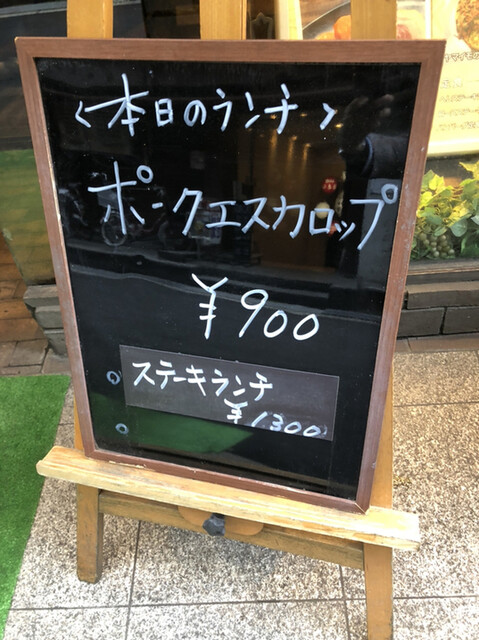 ＜本日のランチ＞
ポークエスカロップ
¥900
ステーキランチ
¥1300